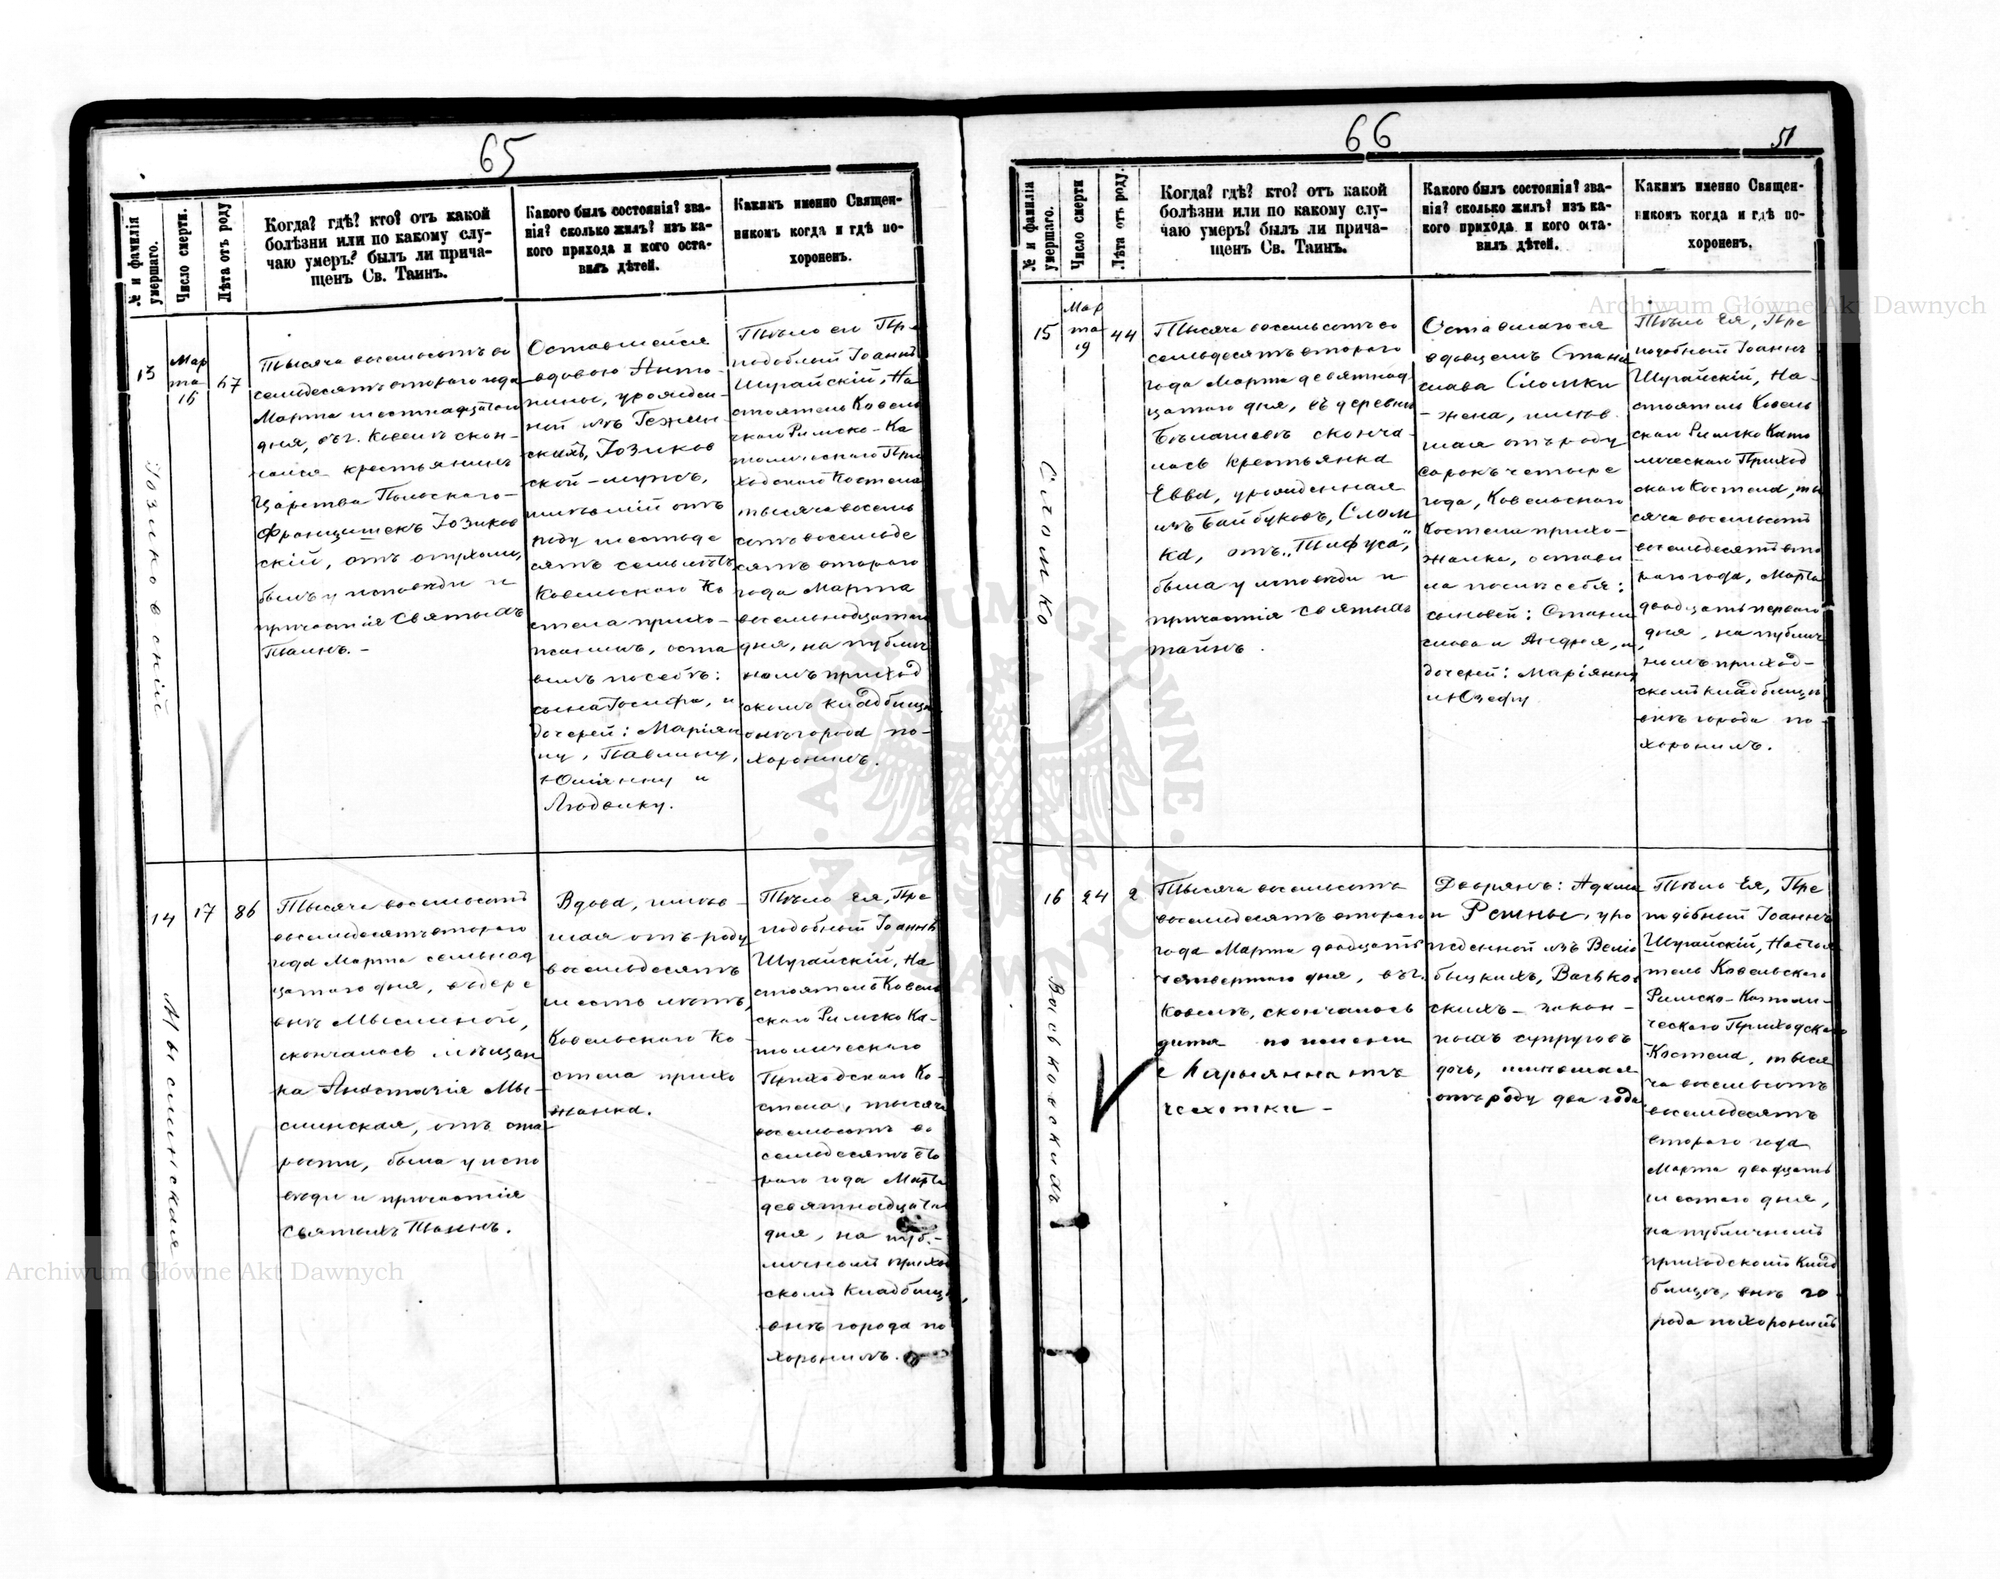 65
№ и фамилія умершаго.
Число смерти.
Лѣта отъ роду
Когда? гдѣ? кто? отъ какой
болѣзни или по какому слу-
чаю умеръ? былъ ли прича-
щенъ Св. Таинъ.
Какого былъ состоянія? зва-
нія? сколько жилъ? изъ ка-
кого прихода и кого оста-
вилъ дѣтей.
Какимъ именно Священ-
никомъ когда и гдѣ по-
хороненъ.
13
Мар
та
16
67
Тысяча восемьсотъ во
семьдесятъ втораго года
Марта шестнадцатаго
дня, въ г. Ковелѣ скон-
чался крестьянинъ
Царства Польскаго-
Францишекъ
скій, отъ опухоли,
былъ у исповѣди и
причастія Святыхъ
Таинъ. -
Оставшейся
вдовою Анто-
нины, урожден-
ной изъ
ской - мужъ,
имѣвшій отъ
роду шестьде
сятъ семь лѣтъ,
Ковельскаго Ко
стела прихо-
жанинъ, оста
вилъ по себѣ:
сына Іосифа, и
дочерей: Маріян
ну, Павлину,
Юліянну и
Людвику.
Тѣло его Пре
подобный Іоаннъ
Шугайскій, На
стоятель Ковель
скаго Римско-Ка
толическаго При
ходскаго Костела
тысяча восемь
сотъ восемьде
сятъ втораго
года Марта
восемнадцатаго
дня, на публич
номъ приход
скомъ кладбищѣ
внѣ города по-
хоронилъ.
14
17
86
Мыслинская
Тысяча восемьсотъ
восемьдесятъ втораго
года Марта семнад
цатаго дня, въ дере
внѣ Мыслиной,
скончалась мѣщан
ка Анастасія Мы-
слинская, отъ ста
рости, была у испо
вѣди и причастія
Святыхъ Таинъ.
Вдова, имѣв-
шая отъ роду
восемьдесятъ
шесть лѣтъ,
Ковельскаго Ко
стела прихо
жанка.
Тѣло ея, Пре
подобный Іоаннъ
Шугайскій, На
стоятель Ковель
скаго Римско Ка-
толическаго
Приходскаго Ко-
стела, тысяча
восемьсотъ во
семьдесятъ вто
раго года Марта
девятнадцатаго
дня, на пуб.-
личномъ приход
скомъ кладбищѣ,
внѣ города по
хоронилъ.
66
51
№ и фамилія умершаго.
Число смерти
Лѣта отъ роду.
Когда? гдѣ? кто? отъ какой
болѣзни или по какому слу-
чаю умеръ? былъ ли прича-
щенъ Св. Таинъ.
Какого былъ состоянія? зва-
нія? сколько жилъ? изъ ка-
кого прихода и кого оста-
вилъ дѣтей.
Какимъ именно Священ-
никомъ когда и гдѣ по-
хороненъ.
15
Мар
та
19
44
Сломко
Тысяча восемьсотъ во
семьдесятъ втораго
года Марта девятнад
цатаго дня, въ деревнѣ
сконча-
лась крестьянка
Евва, урожденная
изъ Байбуковъ, Слом
ка, отъ „Тифуса",
была у исповѣди и
причастія святыхъ
тайнъ.
Оставшагося
вдовцемъ Стани
слава Сломки
- жена, имѣв
шая отъ роду
сорокъ четыре
года, Ковельскаго
Костела прихо-
жанка, остави
ла послѣ себя:
сыновей: Стани
слава и Андрея, и
дочерей: Маріянну
и Юзефу
Тѣло Ея, Пре
подобный Іоаннъ
Шугайскій, На-
стоятель Ковель
скаго Римско Като
лическаго Приход
скаго Костела, ты
сяча восемьсотъ
восемьдесятъ вто
раго года, Марта
двадцать перваго
дня, на публич
номъ приход-
скомъ кладбищѣ
внѣ города по-
хоронилъ.
16
24
2
Тысяча восемьсотъ
восемьдесятъ втораго
года Марта двадцать
четвертаго дня, въ г.
Ковелѣ, скончалось
дитя по имени
Марыянна отъ
чахотки -
Дворянъ: Адама
и Регины, уро
жденной изъ
скихъ - закон-
ныхъ супруговъ
дочь, имѣвшая
отъ роду два года
Тѣло Ея, Пре
подобный Іоаннъ
Шугайскій, Настоя
тель Ковельскаго
Римско-Католи-
ческаго Приходскаго
Костела, тыся
ча восемьсотъ
восемьдесятъ
втораго года
Марта двадцать
шестаго дня,
на публичномъ
приходскомъ клад
бищѣ, внѣ го
рода похоронилъ
Archiwum Główne Akt Dawnych
Archiwum Główne Akt Dawnych
ARCHIWUM GŁÓWNE AKT DAWNYCH